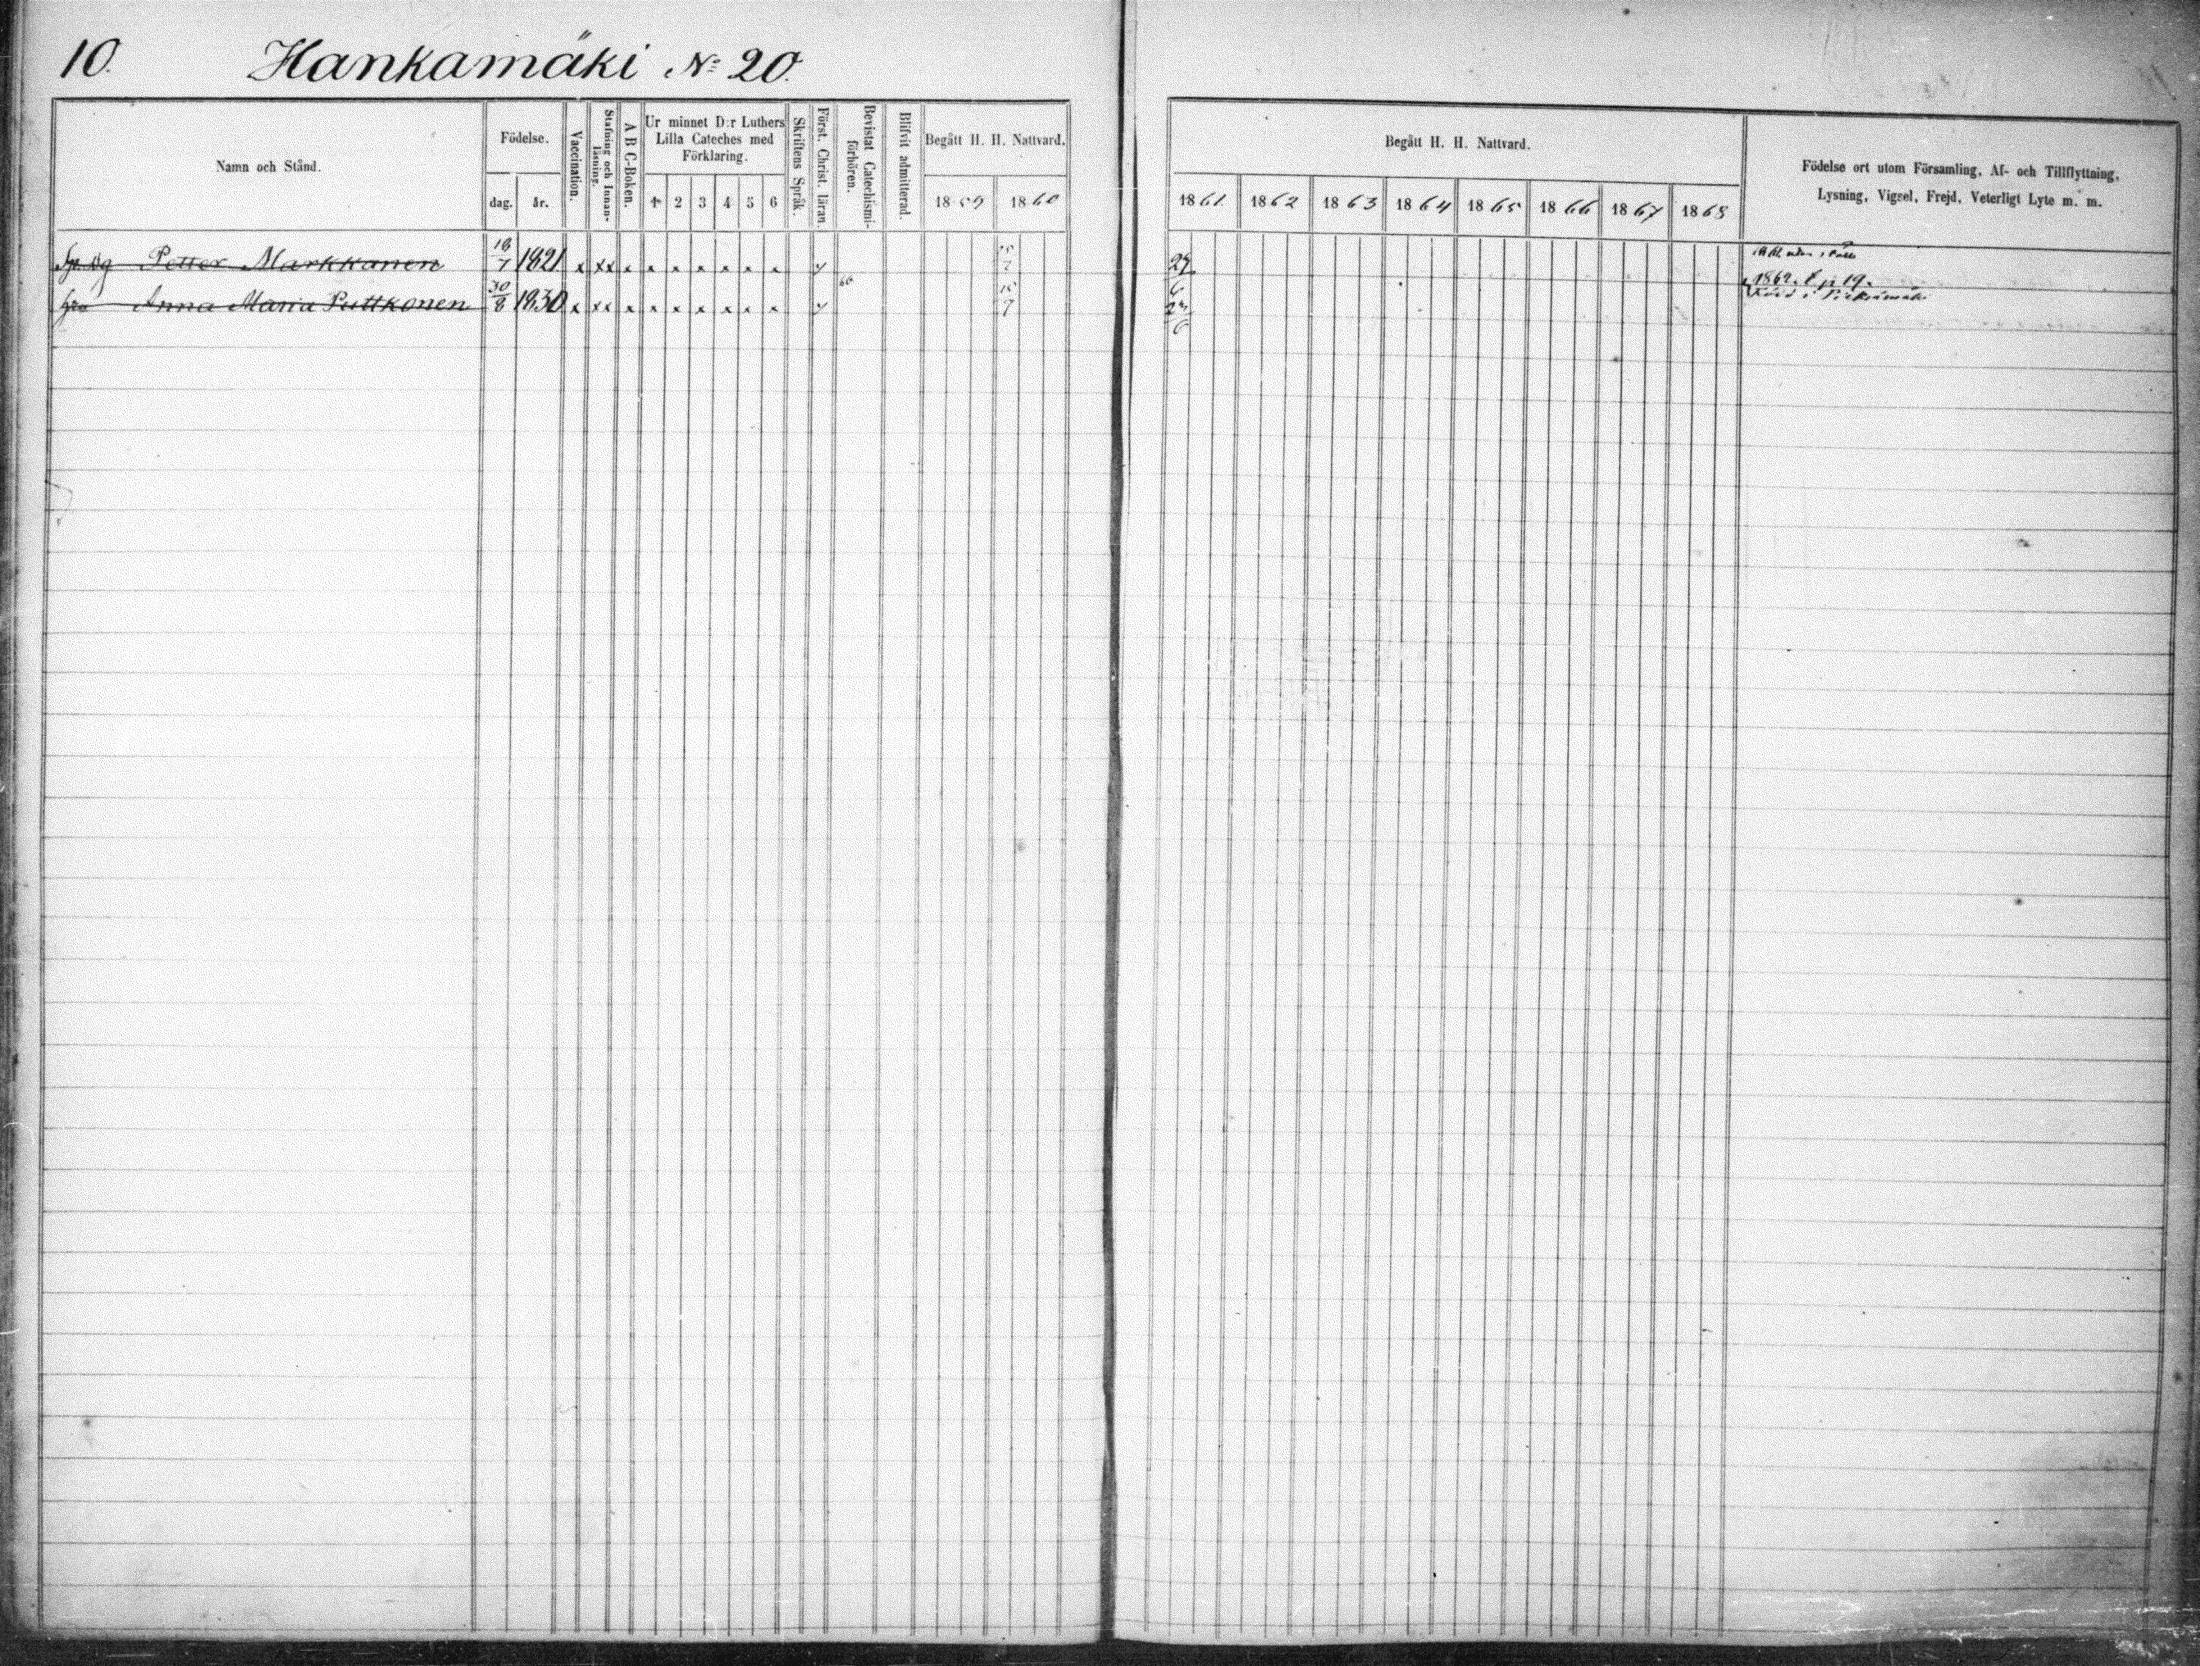 10. Hankamäki No 20.
Namn och Stånd.
Födelse.
dag. år.
Vaccination.
Stafning och Innanläsning.
A B C-Boken.
Ur minnet D:r Luthers
Lilla Cateches med
Förklaring.
1 2 3 4 5 6
Skriftens Språk.
Först. Christ. läran.
Bevistat Catechismiförhören.
Blifvit admitterad.
Begått H. H. Nattvard.
1859 1860
Begått H. H. Nattvard.
1861 1862 1863 1864 1865 1866 1867 1868
Födelse ort utom Församling, Af- och Tillflyttning,
Lysning, Vigsel, Frejd, Veterligt Lyte m. m.
Petter Markkanen 18/7 1821 27/6
Anna Maria Puttkonen 30/8 1830 27/6